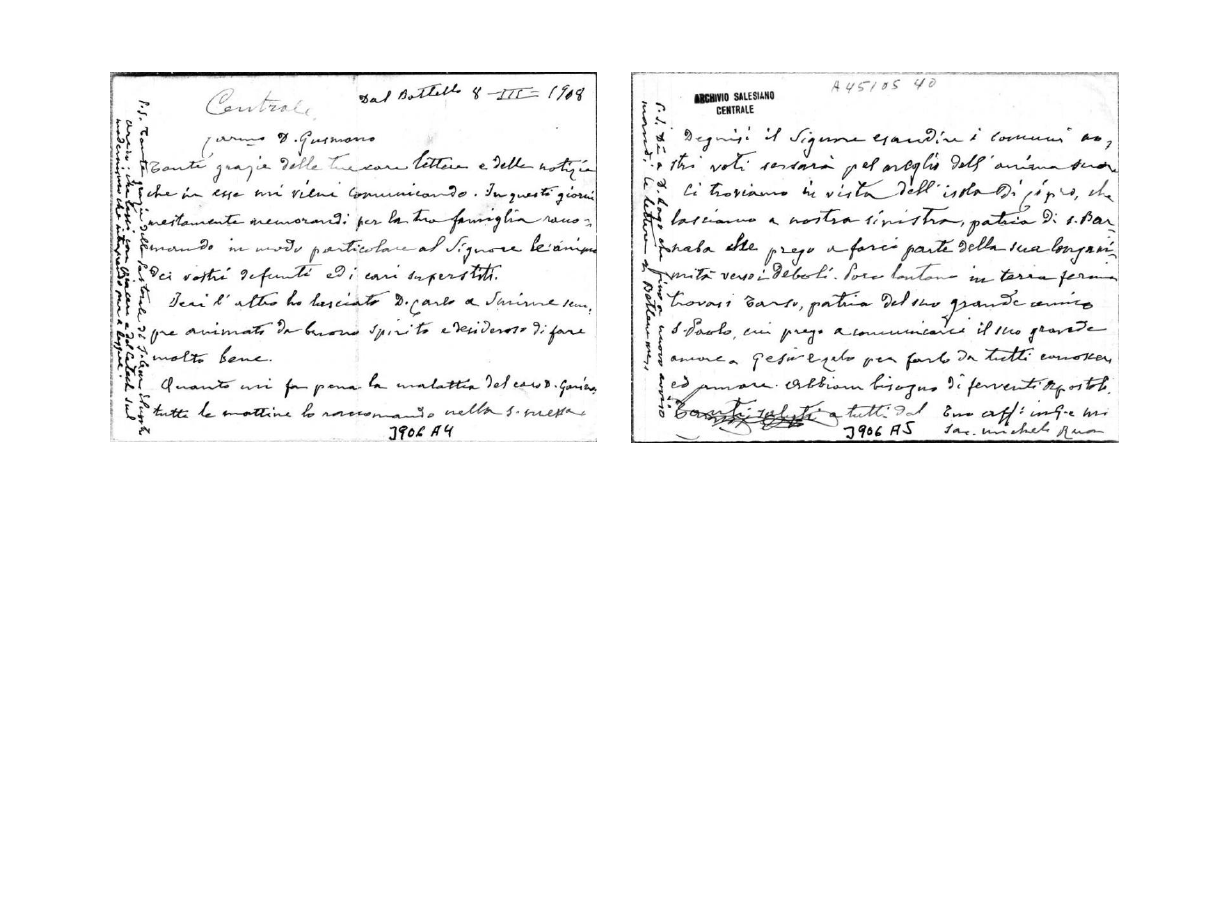 Centrale
Dal Battello 8-III-1908
Carmo D. Gusmano
Tante grazie delle tue care lettere e delle notizie
che in esse mi vieni comunicando. In questi giorni
mestamente memorandi per la tua famiglia racco-
mando in modo particolare al Signore le anime
dei vostri defunti ed i cari superstiti.
Ieri l'altro ho lasciato D. Carlo a Smirne sem-
pre animato da buono spirito e desideroso di fare
molto bene.
Quanto mi fa pena la malattia del caro D.
tutte le mattine lo raccomando nella S. messa
J906 A4
P.S. Tante grazie della Pastorale di
A45105 40
ARCHIVIO SALESIANO
CENTRALE
Degnisi il Signore esaudire i comuni no-
stri voti pel meglio dell'anima sua
Ci troviamo in vista dell'isola di Cipro, che
lasciamo a nostra sinistra, patria di S. Bar-
naba che prego a farci parte della sua longani-
mità verso i deboli. Poco lontano in terra ferma
trovasi Tarso, patria del suo grande amico
S. Paolo, cui prego a comunicarci il suo grande
amore a Gesù e zelo per farlo da tutti conoscere
ed amare. Abbiam bisogno di ferventi apostoli.
Tanti saluti a tutti dal Tuo aff. in G. e M.
Sac. Michele Rua
J906 A5
P.S. Di' a D. che fino a nuovo avviso
mandi le lettere a Betlemme